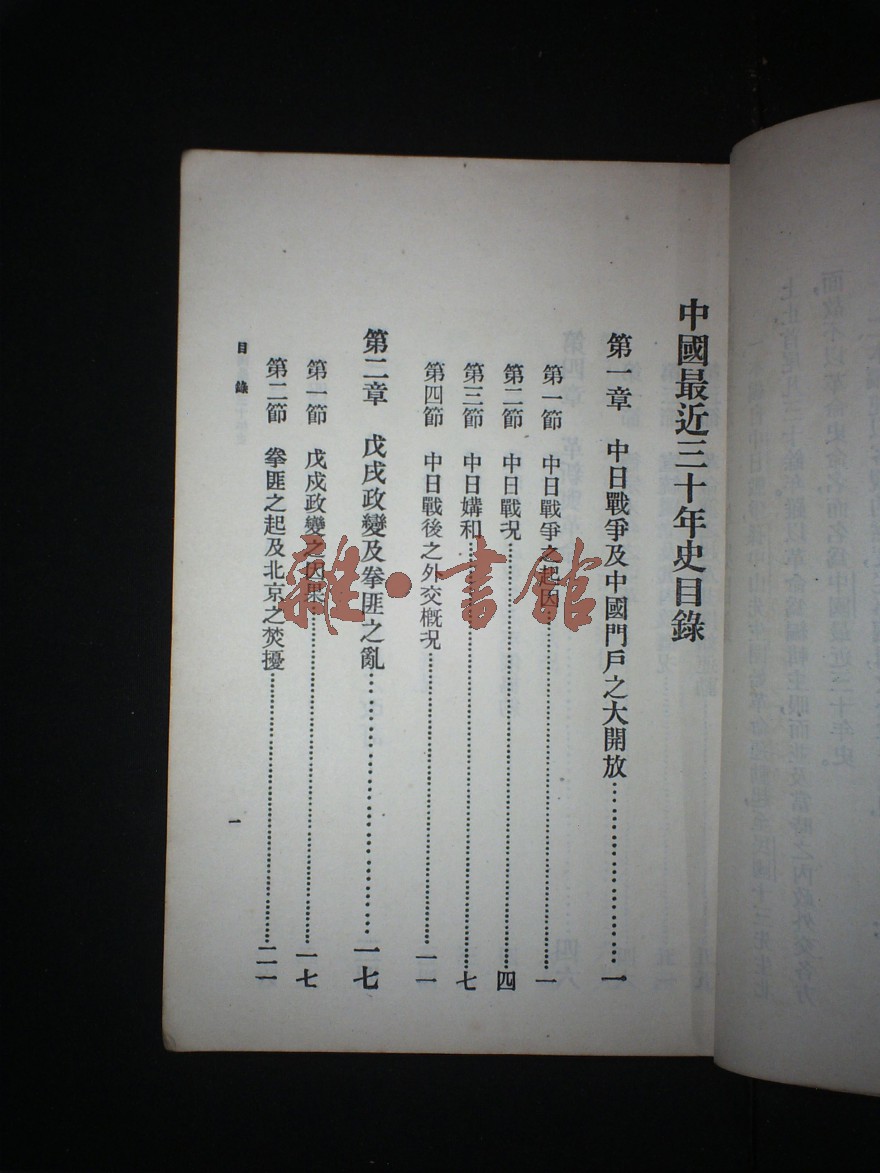 中國最近三十年史目錄
第一章　中日戰爭及中國門戶之大開放……………………一
第一節　中日戰爭之起因……………………一
第二節　中日戰況……………………四
第三節　中日媾和……………………七
第四節　中日戰後之外交概況……………………一一
第二章　戊戌政變及拳匪之亂……………………一七
第一節　戊戌政變之因果……………………一七
第二節　拳匪之起及北京之焚擾……………………二一
目錄
一
雜·書館